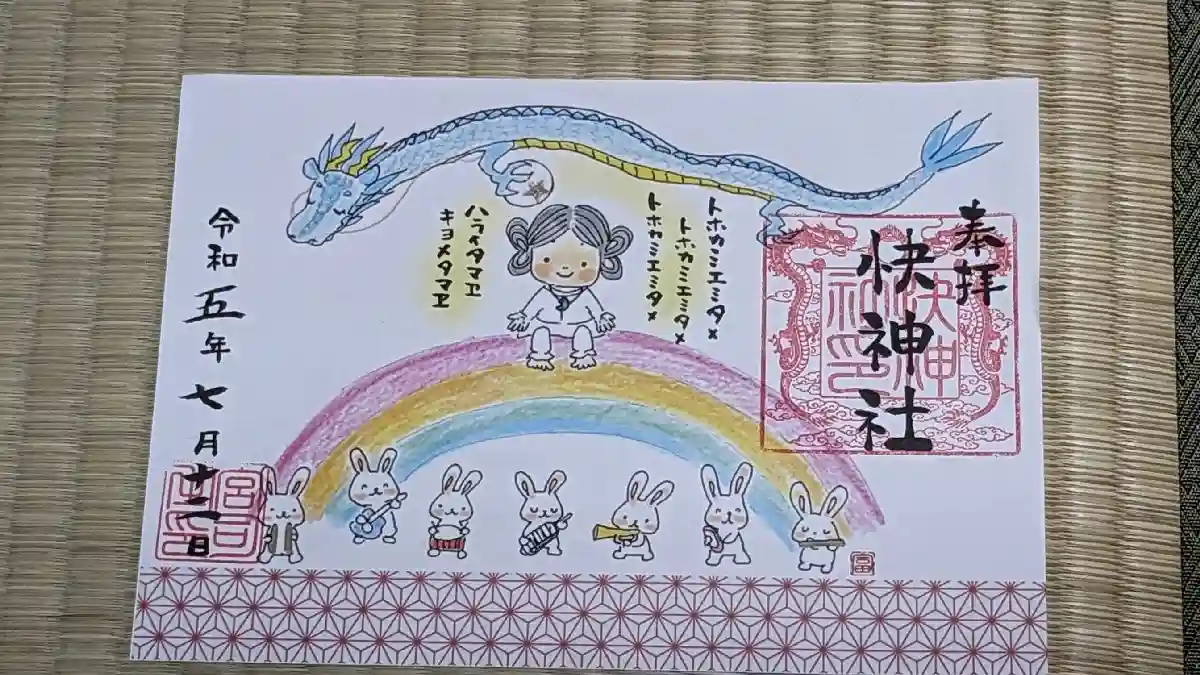 奉拝
快神社
快神社印
トホカミエミタメ
トホカミエミタメ
トホカミエミタメ
ハライタマヱ
キヨメタマヱ
令和五年七月十二日
宮司之印